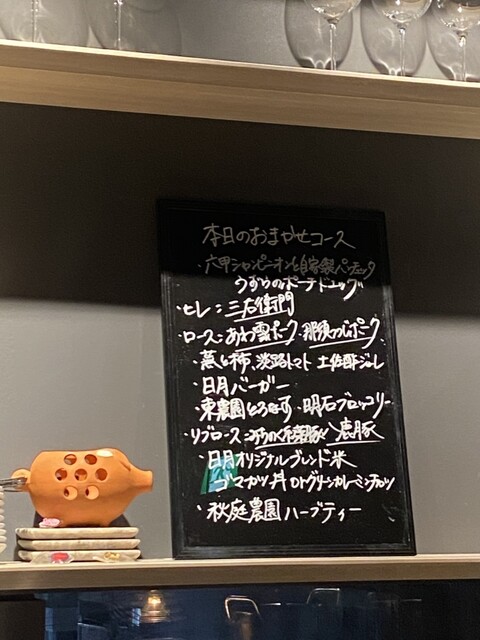 本日のおまかせコース
・六甲シャンピニオンと自家製パンチェッタ
うずらのポーチドエッグ
・ヒレ：三右衛門
・ロース：あわ雪ポーク、那須つじポーク
・蒸し柿、淡路トマト 土佐酢ジュレ
・日月バーガー
・東農園とろなす・明石ブロッコリー
・リブロース：みちのく 鹿豚
・日月オリジナルブレンド米
ゴマカツ丼 or グリーンカレーミンチカツ
・秋庭農園ハーブティー